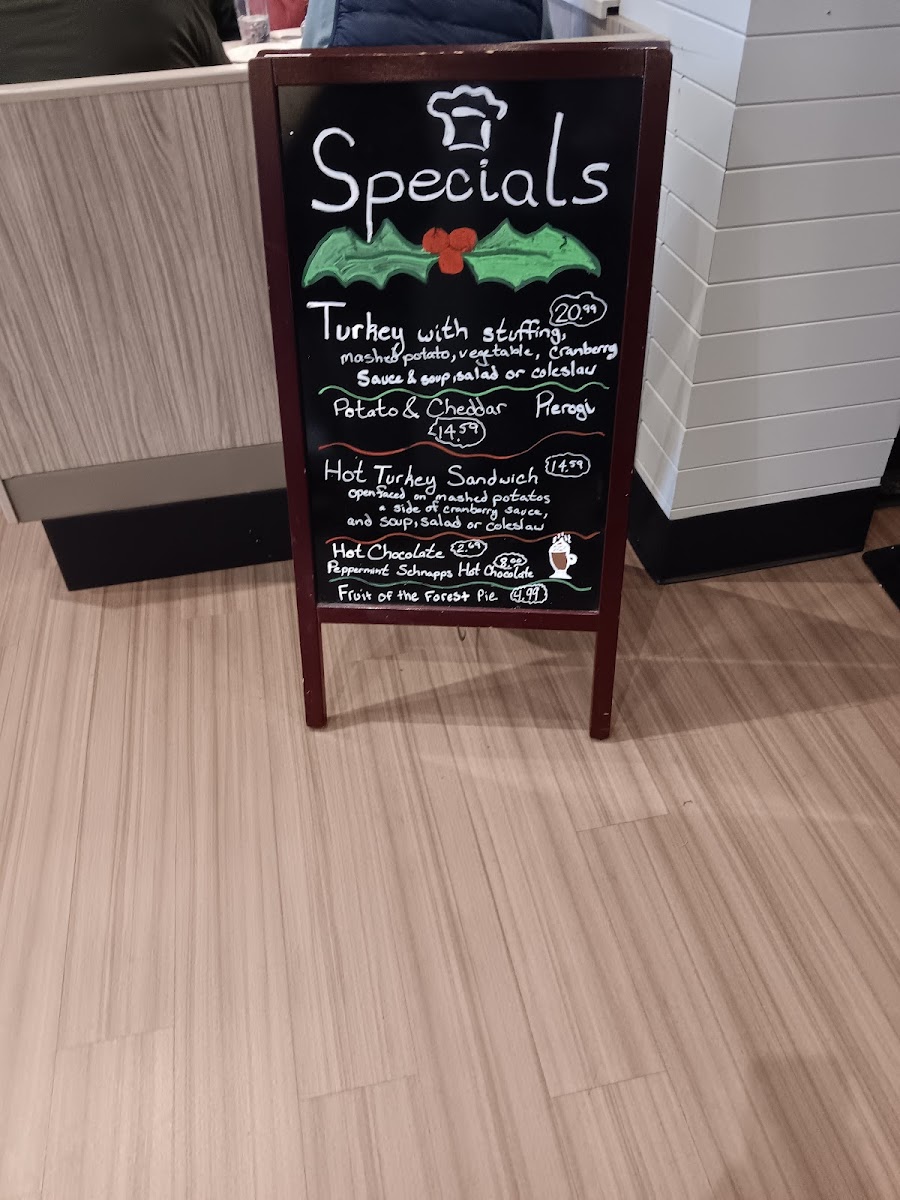 Specials
Turkey with stuffing, 20.99
mashed potato, vegetable, Cranberry
Sauce & soup, salad or coleslaw
Potato & Cheddar Pierogi
14.59
Hot Turkey Sandwich 14.59
open faced on mashed potatos
a side of cranberry sauce,
and soup, salad or coleslaw
Hot Chocolate 2.69
Peppermint Schnapps Hot Chocolate 8.00
Fruit of the Forest Pie 4.99